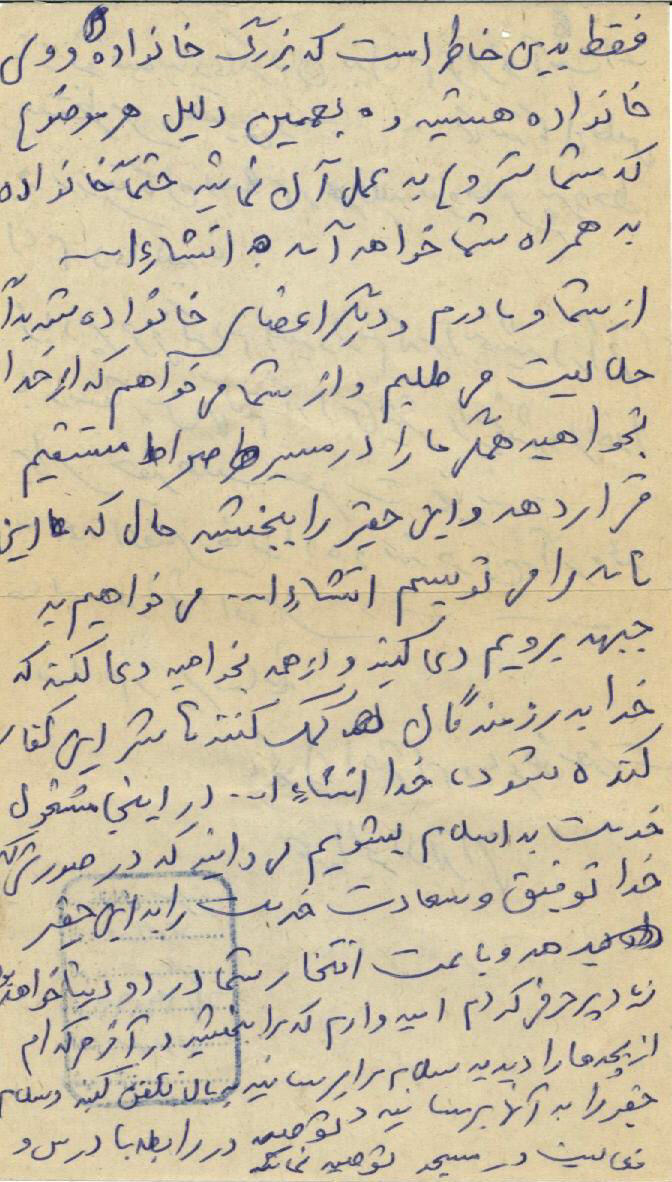 فقط بدین خاطر است که بزرگ خانواده و روی
خانواده هستید و بهمین دلیل هر موضوع
که شما شروع به عمل آن نمائید حتماً خانواده
به همراه شما خواهد آمد انشاءا...
از شما و مادرم و دیگر اعضای خانواده شدیداً
حلالیت می طلبم و از شما می خواهم که از خدا
بخواهید همگی ما را در مسیر صراط مستقیم
قرار دهد و این حقیر را ببخشید حال که این
نامه را می نویسم انشاءا... می خواهیم به
جبهه برویم دعا کنید و از همه بخواهید دعا کنند که
خدا به رزمندگان کمک کنند تا شر این کفار
کنده شود خدا انشاءا... در اینجا مشغول
خدمت به اسلام بشویم می دانید که در صورتی که
خدا توفیق و سعادت خدمت را به این حقیر
میدهد و باعث افتخار شما در دو دنیا خواهد
زیاد پر حرفی کردم امیدوارم که مرا ببخشید در آخر هر کدام
از بچه ها را دیدید سلام مرا برسانید تلفن کنید و سلام
حقیر را به آنها برسانید و توصیه در رابطه با درس و
فعالیت در مسجد توصیه نمائید